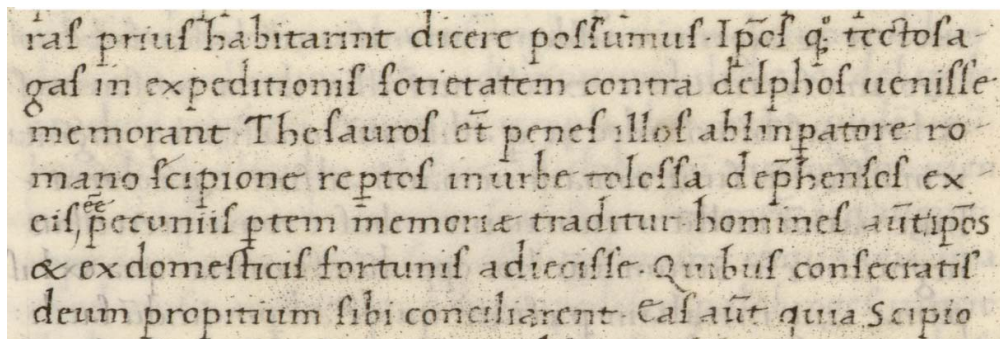 ras prius habitarint dicere possumus. Ip̄os qͦꝫ tectosa
gas in expeditionis sotietatem contra delphos uenisse
memorant. Thesauros et̄ penes illos ab Imꝑatore ro
mano scipione reꝑtos in urbe tolossa dep̄hensos ex
eis, ee̅ pecuniis ꝑtem memoriæ traditur. homines aūt ip̄os
& ex domesticis fortunis adiecisse. Quibus consecratis
deum propitium sibi conciliarent. Eas aūt quia Scipio